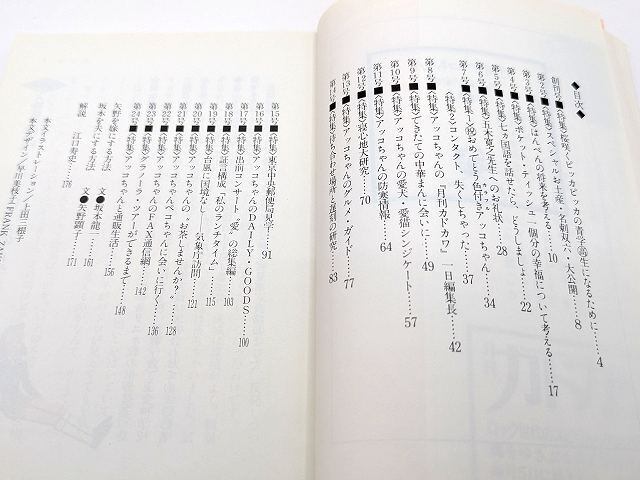 ◆目次◆
創刊号■〈特集〉桜咲く ピッカピッカの青学高生になるために……4
第2号■スペシャルお土産・名刺双六・大公開……8
第3号■〈特集〉はんぺんの将来を考える……10
第4号■〈特集〉ポケット・ティッシュ一個分の幸福について考える……17
第5号■〈特集〉七カ国語を話せたら、どうしましょ……22
第6号■〈特集〉五木寛之先生へのお礼状……28
第7号■〈特集1〉祝おめでとう色付きアッコちゃん……34
〈特集2〉コンタクト、失くしちゃった……37
第8号■〈特集〉アッコちゃんの『月刊カドカワ』一日編集長……42
第9号■〈特集〉できたての中華まんに会いに……49
第10号■〈特集〉アッコちゃんの愛犬・愛猫シンジケート……57
第11号■〈特集〉アッコちゃんの防寒情報……64
第12号■〈特集〉寝心地大研究……70
第13号■〈特集〉アッコちゃんのグルメ・ガイド……77
第14号■〈特集〉待ち合わせ場所と遅刻の研究……83
第15号■〈特集〉東京中央郵便局見学……91
第16号■〈特集〉アッコちゃんのDAILY GOODS……100
第17号■〈特集〉出前コンサート〝愛〟の総集編……103
第18号■〈特集〉証言構成「私のランチタイム」……115
第19号■〈特集〉台風に国境なし——気象庁訪問……121
第20号■〈特集〉アッコちゃんの〝お茶しませんか?〟……128
第21号■〈特集〉アッコちゃんペコちゃんに会いに行く……136
第22号■〈特集〉アッコちゃんのFAX通信網……142
第23号■〈特集〉グラノーラ・ツアーができるまで……148
第24号■〈特集〉アッコちゃんと通販生活……156
矢野を嫁にする方法 文●坂本龍一……161
坂本を夫にする方法 文●矢野顕子……171
解説 江口寿史……176
本文イラストレーション/上田三根子
本文デザイン/早川美枝子